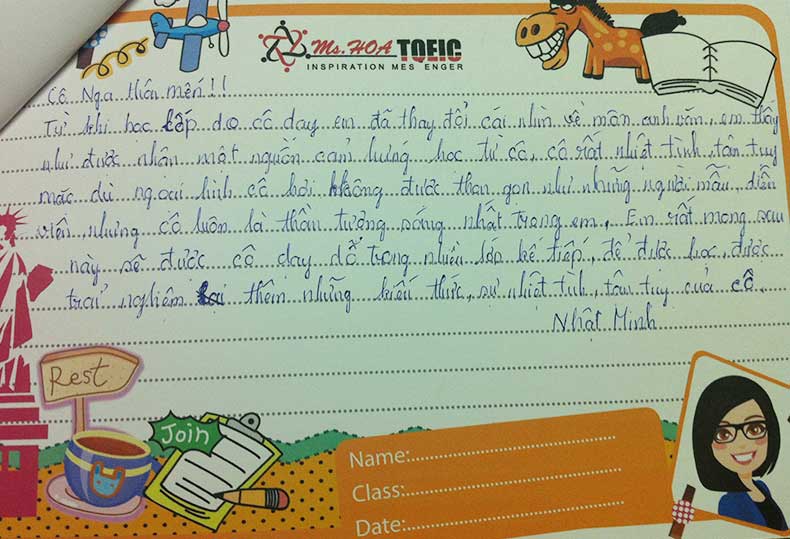 Ms. HOA TOEIC
INSPIRATION MES ENGER
Cô Nga thân mến!!
Từ khi học lớp do cô dạy em đã thay đổi cái nhìn về môn anh văn, em thấy
như được nhận một nguồn cảm hứng học từ cô, cô rất nhiệt tình, tận tuy
mặc dù ngoại hình cô hơi không được thon gọn như những người mẫu, diễn
viên, nhưng cô luôn là thần tượng sáng nhất trong em. Em rất mong sau
này sẽ được cô dạy dỗ trong nhiều lớp kế tiếp, để được học, được
trải nghiệm thêm những kiến thức, sự nhiệt tình, tận tuy của cô.
Nhật Minh
Rest
Join
Name:
Class:
Date: